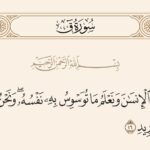 سُورَةُ ق
بِسْمِ ٱللَّهِ ٱلرَّحْمَٰنِ ٱلرَّحِيمِ
ٱلْإِنسَٰنَ وَنَعْلَمُ مَا تُوَسْوِسُ بِهِۦ نَفْسُهُۥ ۖ وَنَحْنُ